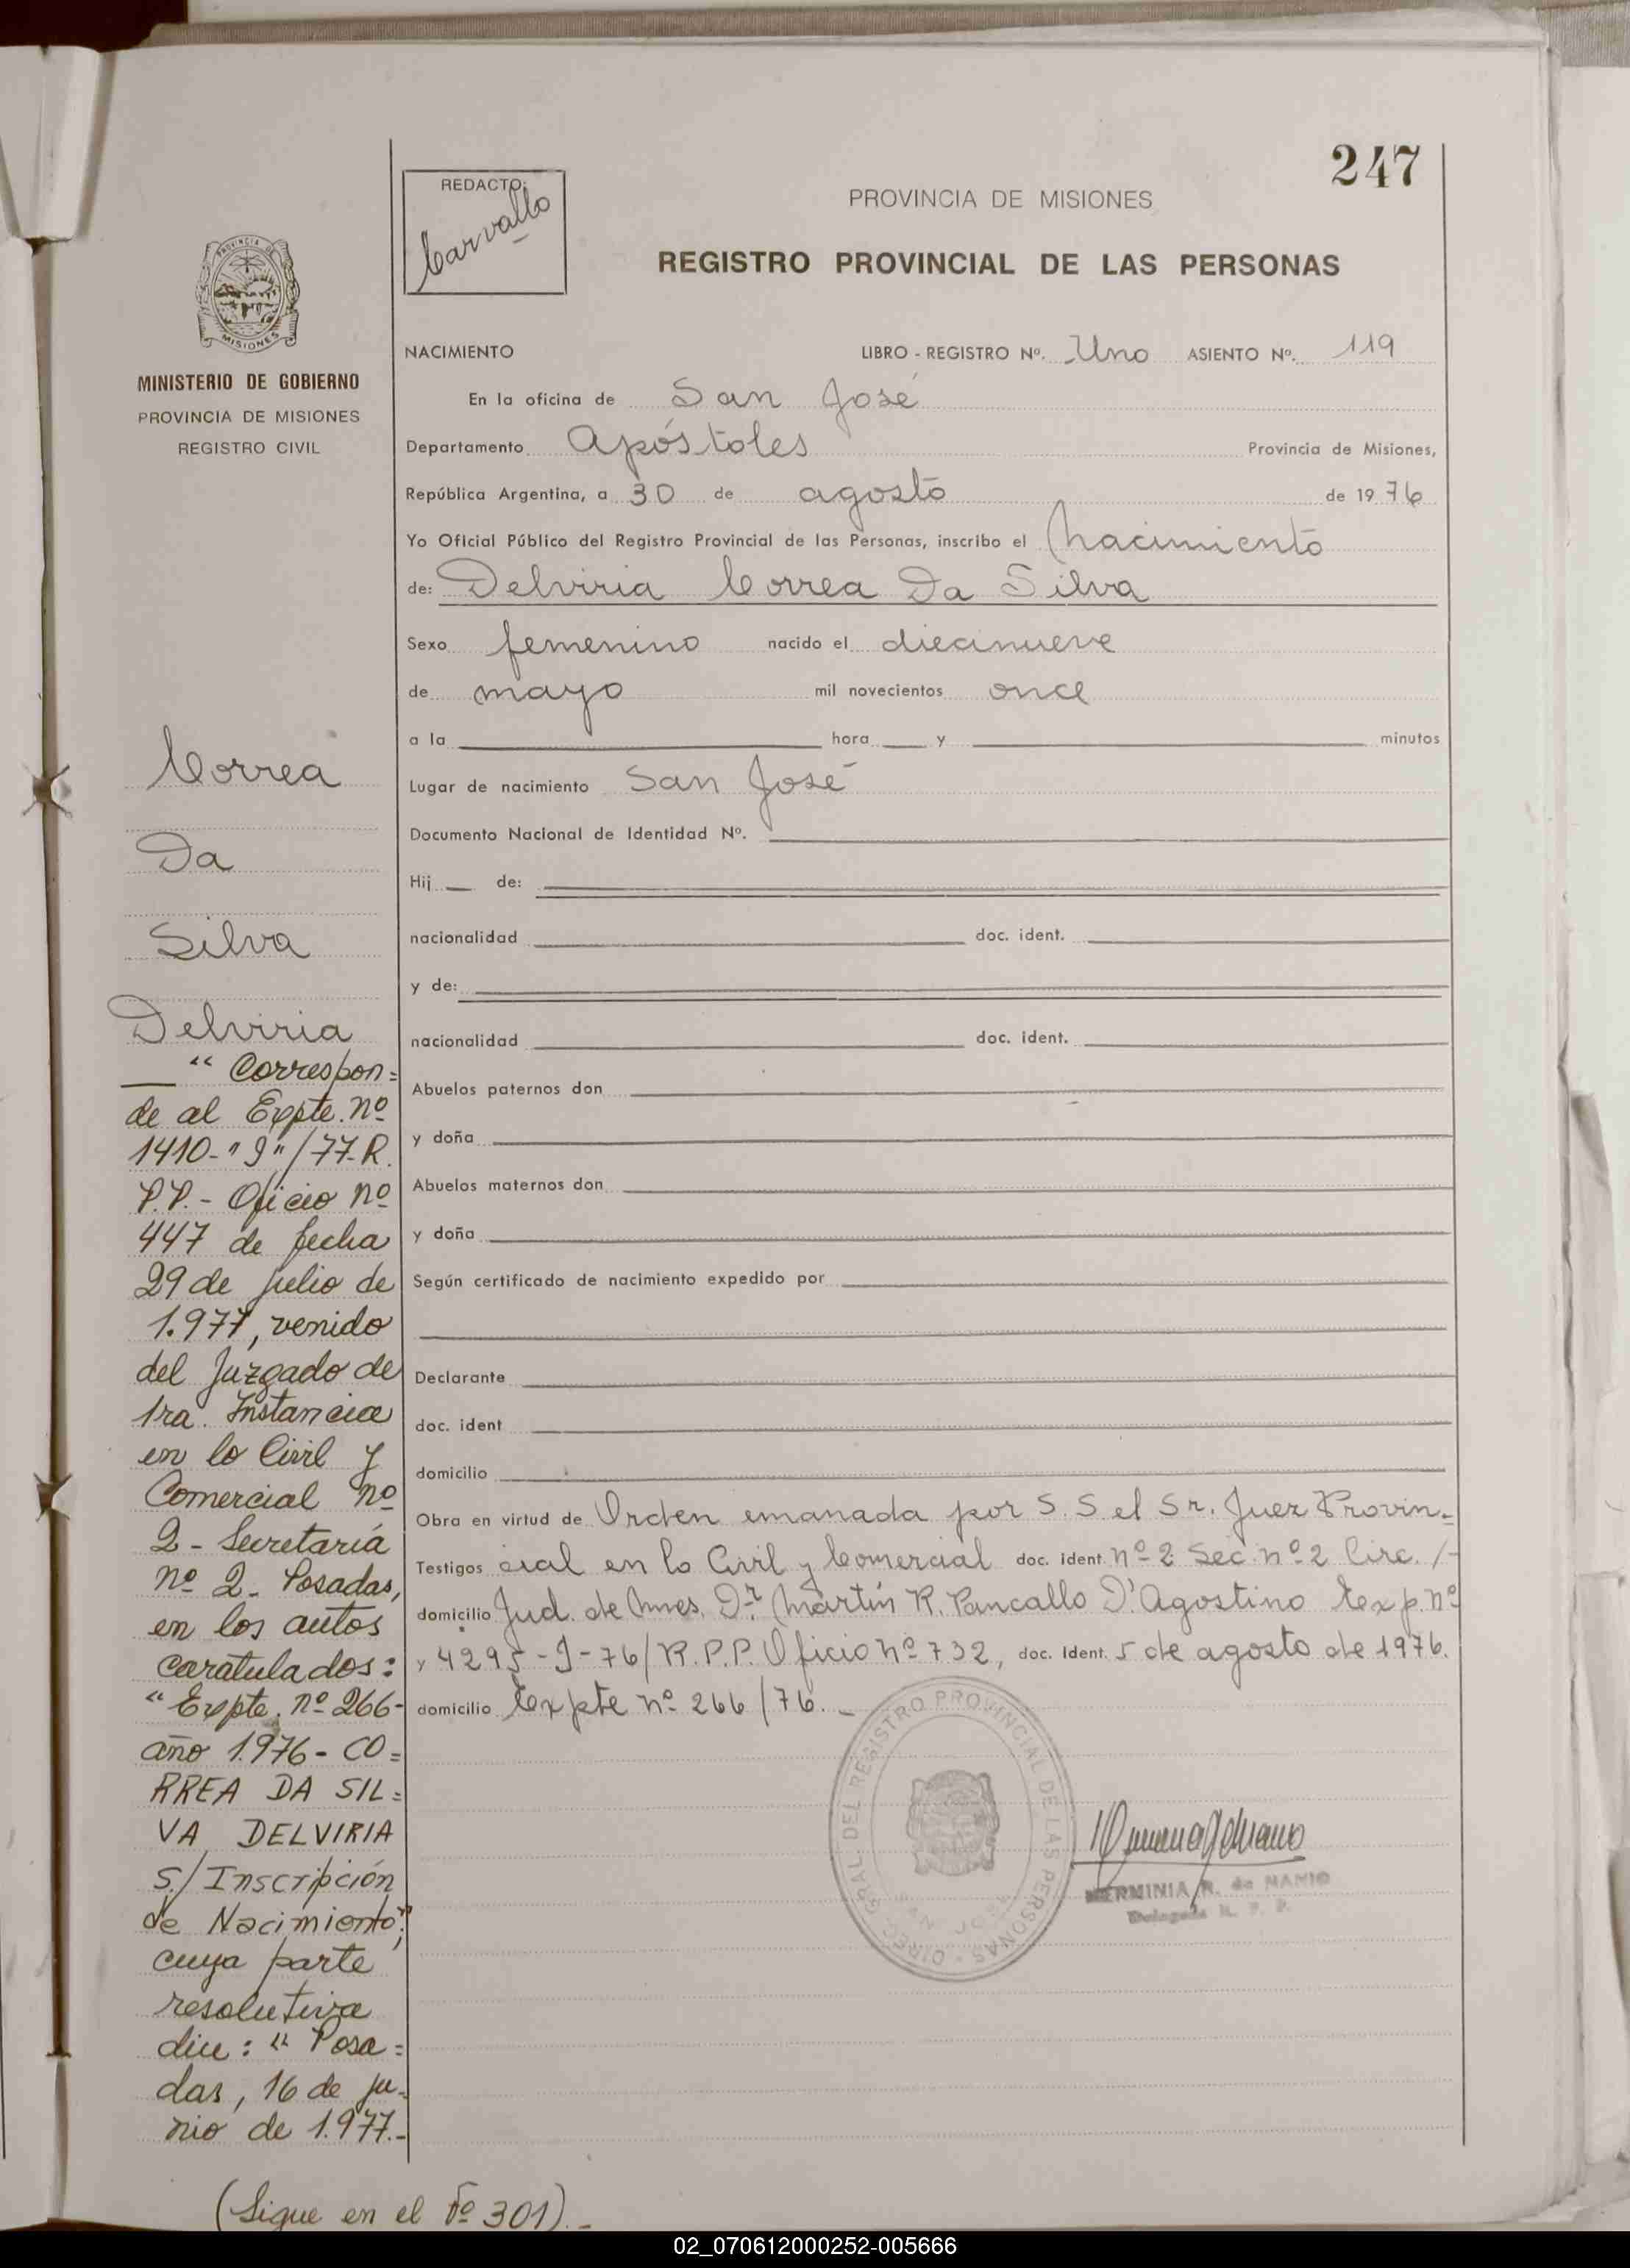 247
REDACTO:
Carvallo
PROVINCIA DE MISIONES
REGISTRO PROVINCIAL DE LAS PERSONAS
PROVINCIA DE
MISIONES
MINISTERIO DE GOBIERNO
PROVINCIA DE MISIONES
REGISTRO CIVIL
NACIMIENTO LIBRO - REGISTRO Nº. Uno ASIENTO Nº. 119
En la oficina de San José
Departamento Apóstoles Provincia de Misiones,
República Argentina, a 30 de agosto de 1976
Yo Oficial Público del Registro Provincial de las Personas, inscribo el Nacimiento
de: Delviria Correa Da Silva
Sexo femenino nacido el diecinueve
de mayo mil novecientos once
a la hora y minutos
Lugar de nacimiento San José
Documento Nacional de Identidad Nº.
Hij de:
nacionalidad doc. ident.
y de:
nacionalidad doc. ident.
Abuelos paternos don
y doña
Abuelos maternos don
y doña
Según certificado de nacimiento expedido por
Declarante
doc. ident
domicilio
Obra en virtud de Orden emanada por S. S el Sr. Juez Provin=
Testigos cial en lo Civil y Comercial doc. ident. nº 2 Sec. nº 2 Circ. /-
domicilio Jud. de Mnes. Dr Martín R. Pancallo D'Agostino Exp. nº
y 4295-J-76/R.P.P. Oficio nº 732, doc. Ident. 5 de agosto de 1976.
domicilio Expte nº 266/76.-
Correa
Da
Silva
Delviria
" Correspon=
de al Expte. nº
1410-"J"/77-R.
P.P.- Oficio nº
447 de fecha
29 de julio de
1.977, venido
del Juzgado de
1ra. Instancia
en lo Civil y
Comercial nº
2 - Secretaría
nº 2- Posadas,
en los autos
caratulados:
"Expte. nº 266-
año 1.976- CO=
RREA DA SIL=
VA DELVIRIA
S/ Inscripción
de Nacimiento",
cuya parte
resolutiva
dice: " Posa=
das, 16 de ju-
nio de 1.977.-
(Sigue en el Fº 301).-
DIREC. GRAL. DEL REGISTRO PROVINCIAL DE LAS PERSONAS
SAN JOSE
HERMINIA R. de NAMIO
Delegada R. P. P.
02_070612000252-005666